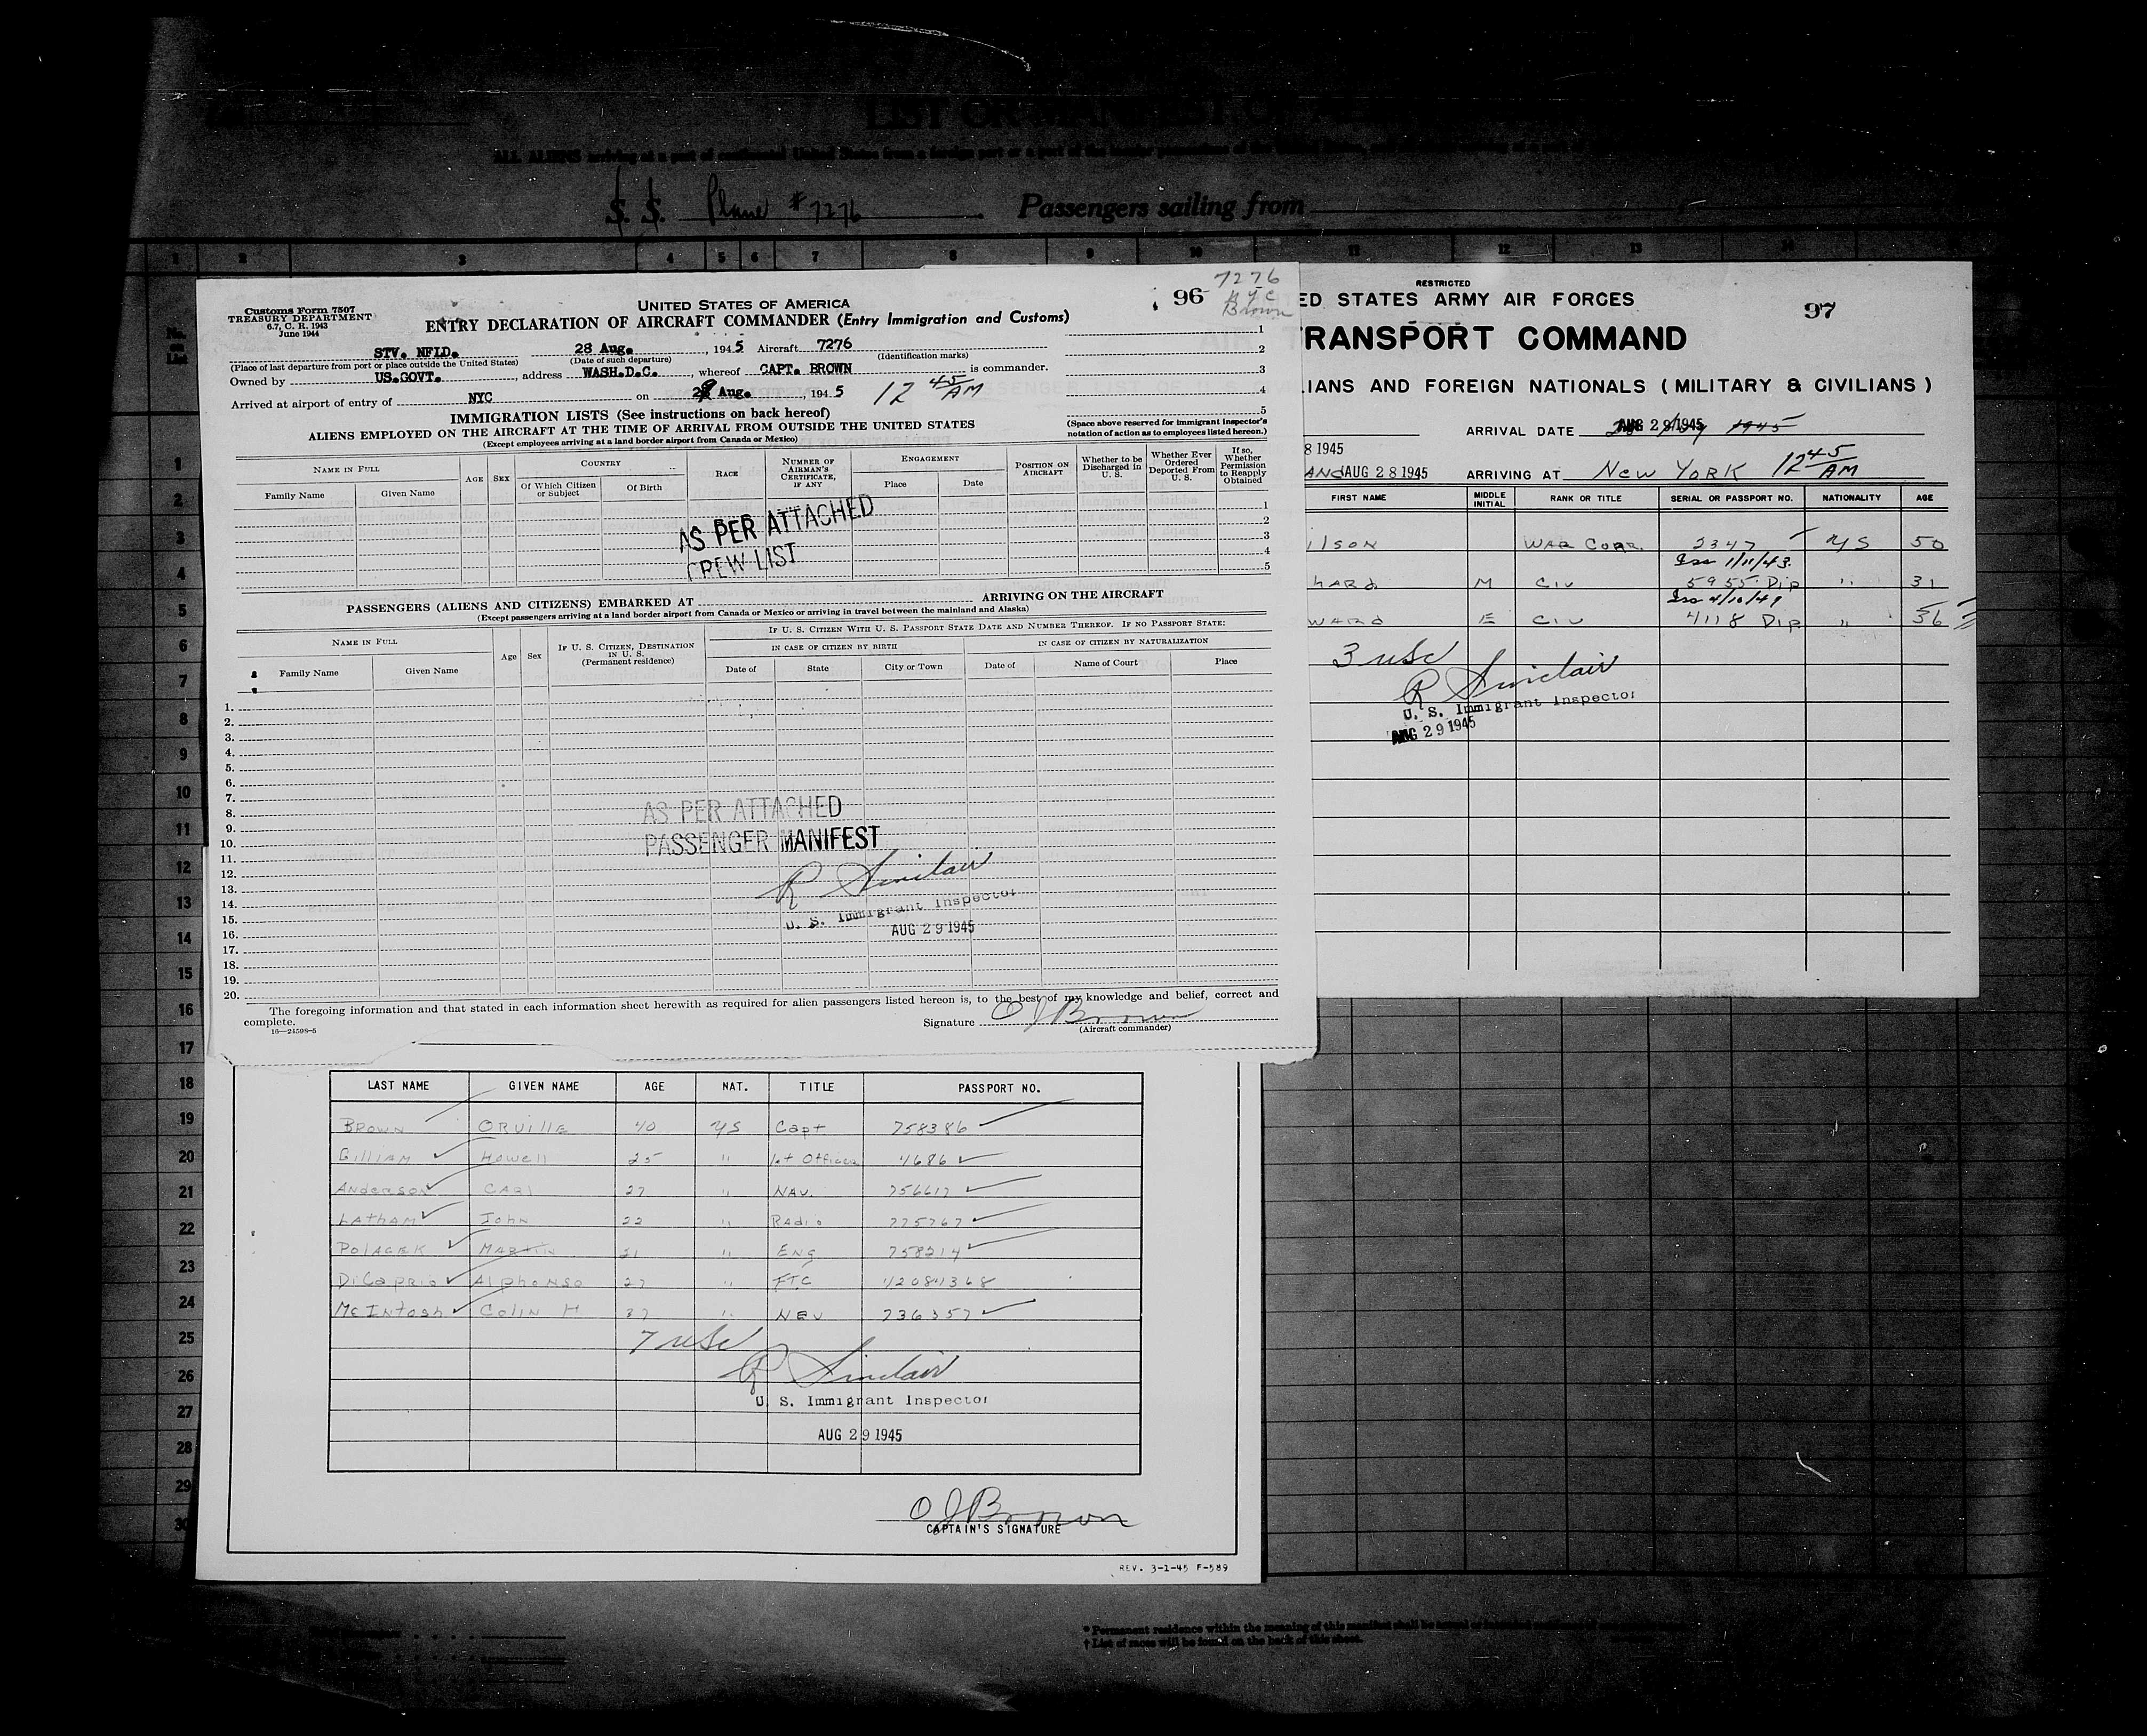 LIST OR MANIFEST OF
ALL ALIENS arriving at a port of continental United States from a foreign port or a port of the insular possessions of the United States,
S. S. Plane #7276 Passengers sailing from
1 2 3 4 5 6 7 8 9 10 11 12 13 14
96
7276
NYC
Brown
Customs Form 7507
TREASURY DEPARTMENT
6.7, C. R. 1943
June 1944
UNITED STATES OF AMERICA
ENTRY DECLARATION OF AIRCRAFT COMMANDER (Entry Immigration and Customs)
STV. NFLD. 28 Aug. , 1945 Aircraft 7276
(Place of last departure from port or place outside the United States) (Date of such departure) (Identification marks)
Owned by US.GOVT. , address WASH.D.C. , whereof CAPT. BROWN is commander.
Arrived at airport of entry of NYC on 29 Aug. , 1945 12 45 AM
1
2
3
4
5
(Space above reserved for immigrant inspector's notation of action as to employees listed hereon.)
IMMIGRATION LISTS (See instructions on back hereof)
ALIENS EMPLOYED ON THE AIRCRAFT AT THE TIME OF ARRIVAL FROM OUTSIDE THE UNITED STATES
(Except employees arriving at a land border airport from Canada or Mexico)
NAME IN FULL AGE SEX COUNTRY RACE NUMBER OF AIRMAN'S CERTIFICATE, IF ANY ENGAGEMENT POSITION ON AIRCRAFT Whether to be Discharged in U. S. Whether Ever Ordered Deported From U. S. If so, Whether Permission to Reapply Obtained
Family Name Given Name Of Which Citizen or Subject Of Birth Place Date
1
2
3
4
5
AS PER ATTACHED
CREW LIST
PASSENGERS (ALIENS AND CITIZENS) EMBARKED AT ARRIVING ON THE AIRCRAFT
(Except passengers arriving at a land border airport from Canada or Mexico or arriving in travel between the mainland and Alaska)
NAME IN FULL Age Sex IF U. S. CITIZEN, DESTINATION IN U. S. (Permanent residence) IF U. S. CITIZEN WITH U. S. PASSPORT STATE DATE AND NUMBER THEREOF. IF NO PASSPORT STATE:
IN CASE OF CITIZEN BY BIRTH IN CASE OF CITIZEN BY NATURALIZATION
Family Name Given Name Date of State City or Town Date of Name of Court Place
1.
2.
3.
4.
5.
6.
7.
8.
9.
10.
11.
12.
13.
14.
15.
16.
17.
18.
19.
20.
AS PER ATTACHED
PASSENGER MANIFEST
R Sinclair
U. S. Immigrant Inspector
AUG 29 1945
The foregoing information and that stated in each information sheet herewith as required for alien passengers listed hereon is, to the best of my knowledge and belief, correct and
complete.
16—24598-5
Signature O J Brown
(Aircraft commander)
RESTRICTED
97
ED STATES ARMY AIR FORCES
TRANSPORT COMMAND
IANS AND FOREIGN NATIONALS (MILITARY & CIVILIANS)
ARRIVAL DATE AUG 29 1945 1945
8 1945
AND AUG 28 1945 ARRIVING AT NEW YORK 12 45 AM
FIRST NAME MIDDLE INITIAL RANK OR TITLE SERIAL OR PASSPORT NO. NATIONALITY AGE
ilson WAR CORR. 2347 US 50
Iss 1/11/43
hard M CIV 5955 Dip " 31
Iss 4/10/49
ward E CIV 4118 Dip " 36
3 USC
R Sinclair
U. S. Immigrant Inspector
AUG 29 1945
LAST NAME GIVEN NAME AGE NAT. TITLE PASSPORT NO.
BROWN ORVILLE 40 US Capt 758386
GILLIAM Howell 25 " 1st Officer 4686
Anderson CARl 27 " NAV. 756617
LATHAM John 22 " RAdio 775767
POLACEK MARTIN 21 " ENG 758214
DiCaprio Alphonso 27 " FTC 42084368
McIntosh Colin H 37 " NEV 736357
7 USC
R Sinclair
U. S. Immigrant Inspector
AUG 29 1945
O J Brown
CAPTAIN'S SIGNATURE
REV. 3-1-45 F-589
1
2
3
4
5
6
7
8
9
10
11
12
13
14
15
16
17
18
19
20
21
22
23
24
25
26
27
28
29
30
* Permanent residence within the meaning of this manifest shall be actual or
† List of races will be found on the back of this sheet.